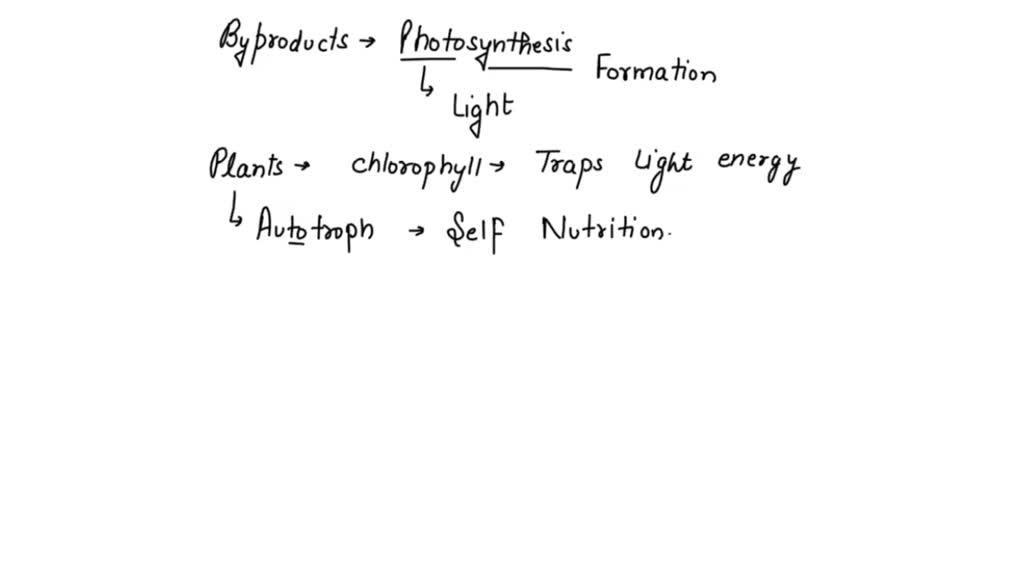 Byproducts → Photosynthesis Formation
↳ Light
Plants → chlorophyll → Traps Light energy
↳ Autotroph → Self Nutrition.